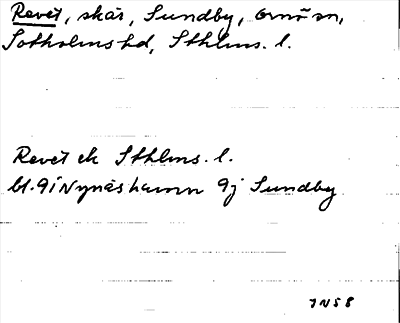 Revet, skär, Sundby, Ornö sn,
Sotholms hd, Sthlms. l.
Revet ek Sthlms. l.
bl. 9i Nynäshamn 9j Sundby
7NS8